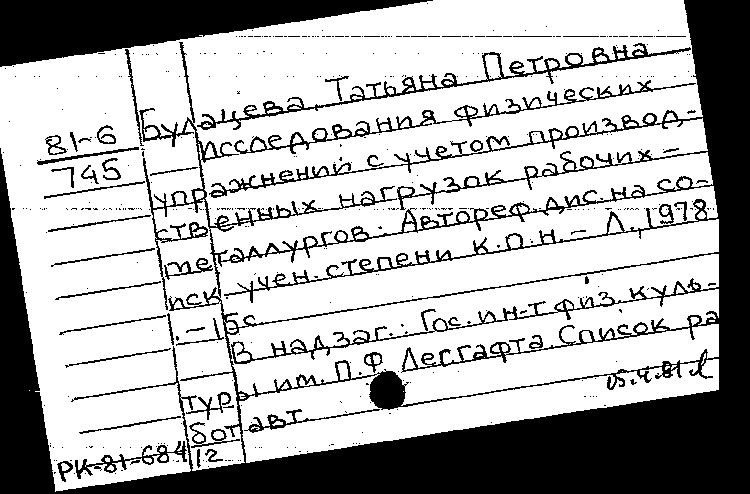 81-6
745
Будацева, Татьяна Петровна
Исследования физических
упражнений с учетом производ-
ственных нагрузок рабочих-
металлургов: Автореф.дис.на со-
иск. учен. степени к.п.н. – Л., 1978
. – 15с
В надзаг.: Гос.ин-т физ.куль-
туры им. П.Ф Лесгафта. Список ра
бот авт.
РК-81-684 12